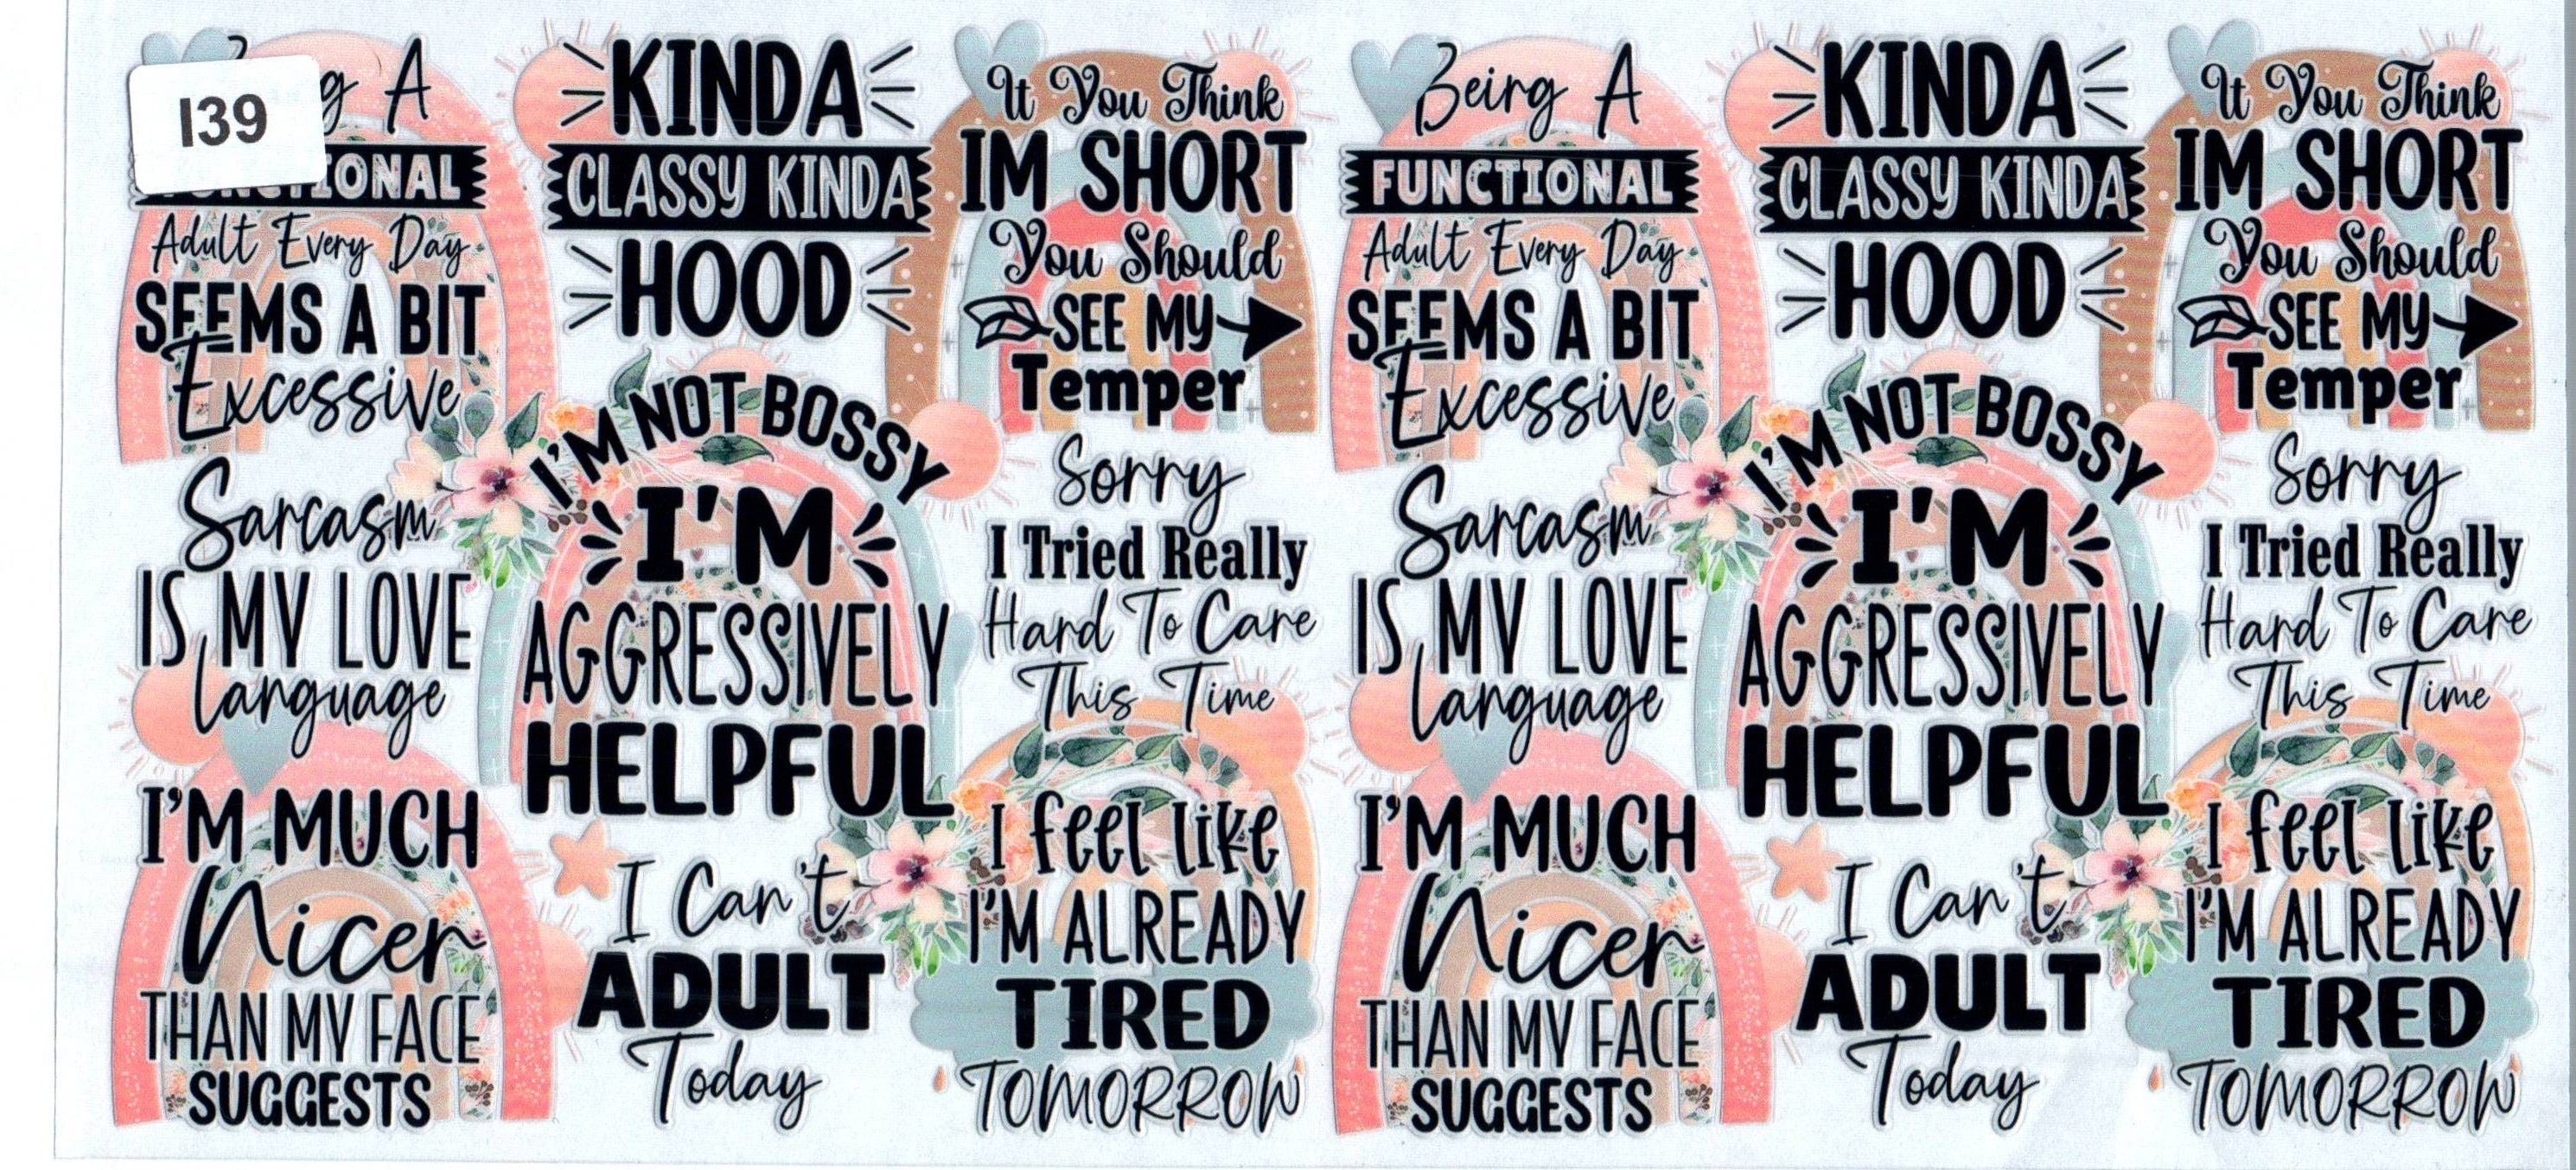 I39
A
Adult Every Day
SEEMS A BIT
Excessive
KINDA
CLASSY KINDA
HOOD
It You Think
IM SHORT
You Should
SEE MY
Temper
Sarcasm
IS MY LOVE
language
I'M NOT BOSSY
I'M
AGGRESSIVELY
HELPFUL
Sorry
I Tried Really
Hard To Care
This Time
I'M MUCH
Nicer
THAN MY FACE
SUGGESTS
I Can't
ADULT
Today
I feel like
I'M ALREADY
TIRED
TOMORROW
Being A
FUNCTIONAL
Adult Every Day
SEEMS A BIT
Excessive
KINDA
CLASSY KINDA
HOOD
It You Think
IM SHORT
You Should
SEE MY
Temper
Sarcasm
IS MY LOVE
language
I'M NOT BOSSY
I'M
AGGRESSIVELY
HELPFUL
Sorry
I Tried Really
Hard To Care
This Time
I'M MUCH
Nicer
THAN MY FACE
SUGGESTS
I Can't
ADULT
Today
I feel like
I'M ALREADY
TIRED
TOMORROW